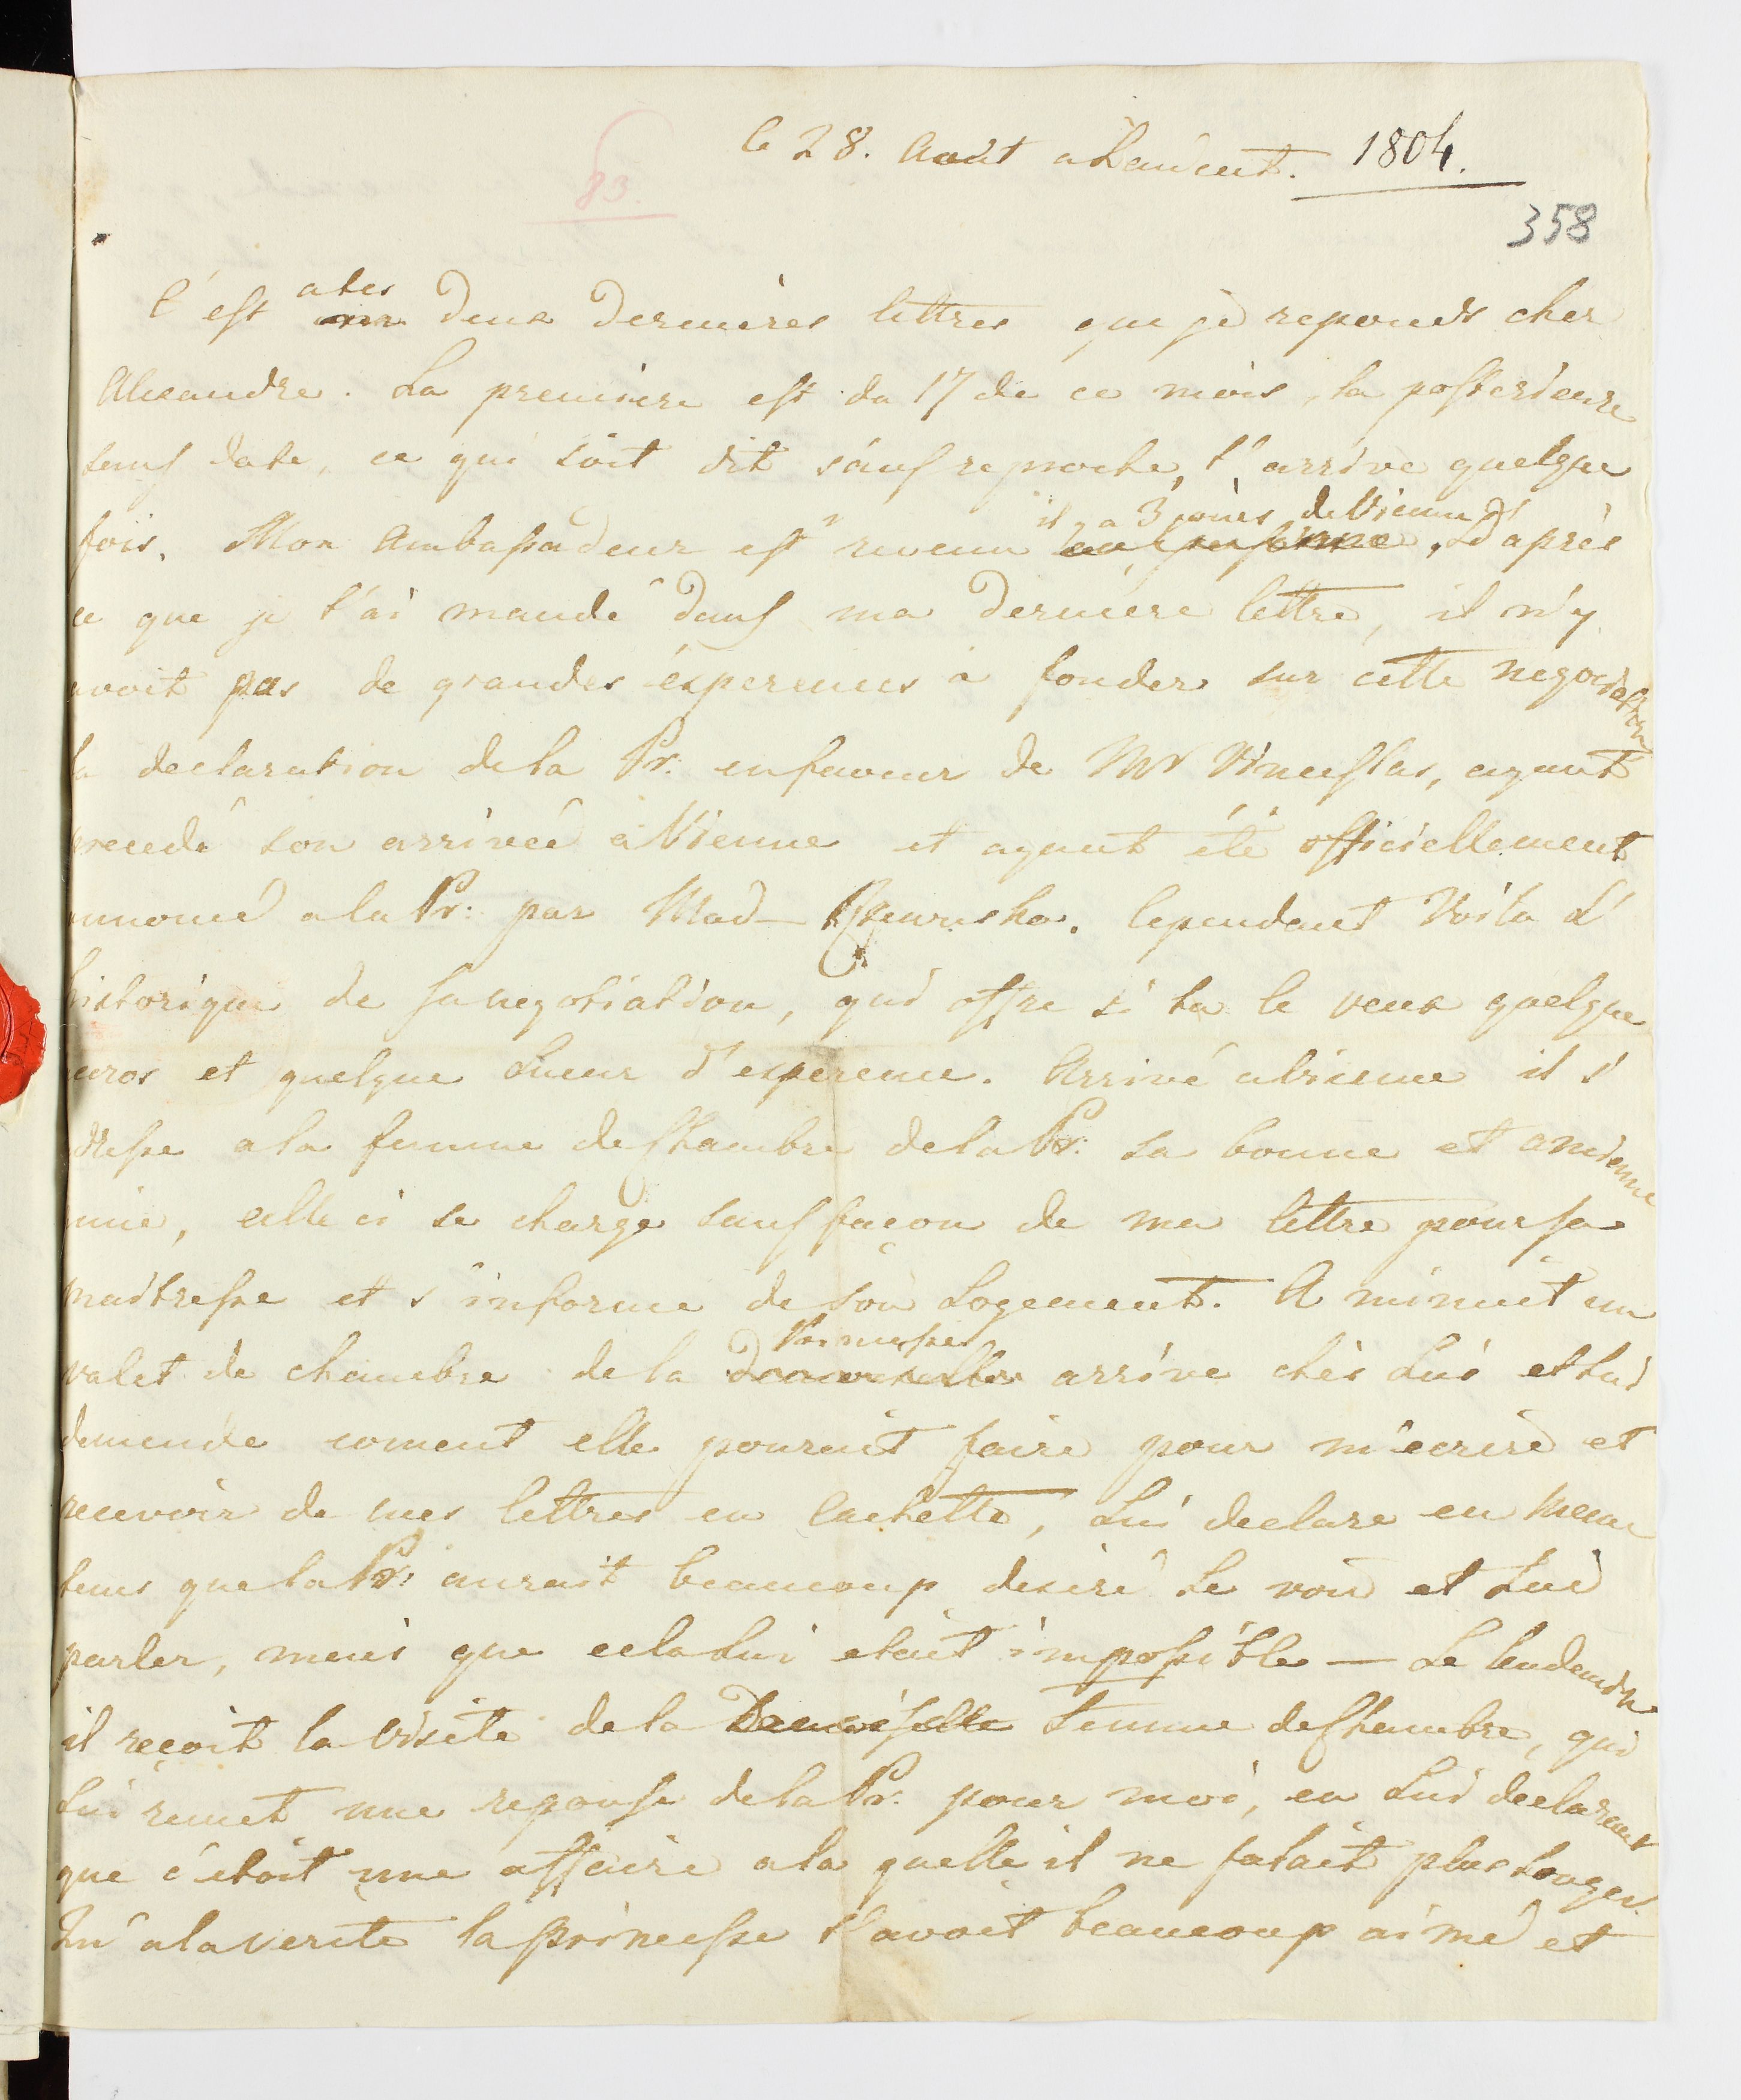 le 28. Aout a Lanicut. 1804.
83.
358
C'est a tes deux dernières lettres que je reponds cher
Alexandre. La premiere est du 17 de ce mois, la posterieure
sans date, ce qui soit dit sans reproche, t'arrive quelque
fois. Mon Ambassadeur est revenu il y a 3 jours de Vienne. D'après
ce que je t'ai mandé dans ma derniere lettre, il n'y
avoit pas de grandes esperences à fonder sur cette negociation
la declaration de la Pr. en faveur de Mr Vinceslas, ayant
precedé son arrivée a Vienne et ayant été officiellement
annoncé a la Pr: par Mad— Rzewuska. Cependant Voila L'
historique de sa negotiation, qui offre si tu le veux quelque
et quelque Lueur d'esperence. Arrivé a Vienne il s'
dresse a la femme de Chambre de la Pr: sa bonne et ancienne
mie, celle ci se charge sans façon de ma lettre pour sa
maitresse et s'informe de son Logement. A minuit un
valet de chambre de la Princesse arrive chés Lui et Lui
demende coment elle pourait faire pour m'ecrire et
recevoir de mes lettres en Cachette, Lui declare en meme
tems que la Pr: aurait beaucoup desiré Le voir et Lui
parler, mais que cela Lui etait impossible — Le lendemain
il reçoit la Visite de la Demoiselle femme de Chambre, qui
Lui remet une reponse de la Pr: pour moi, en Lui declarant
que c'etoit une affaire a la quelle il ne falait plus songer.
Qu'a la verité la princesse t'avoit beaucoup aimé et